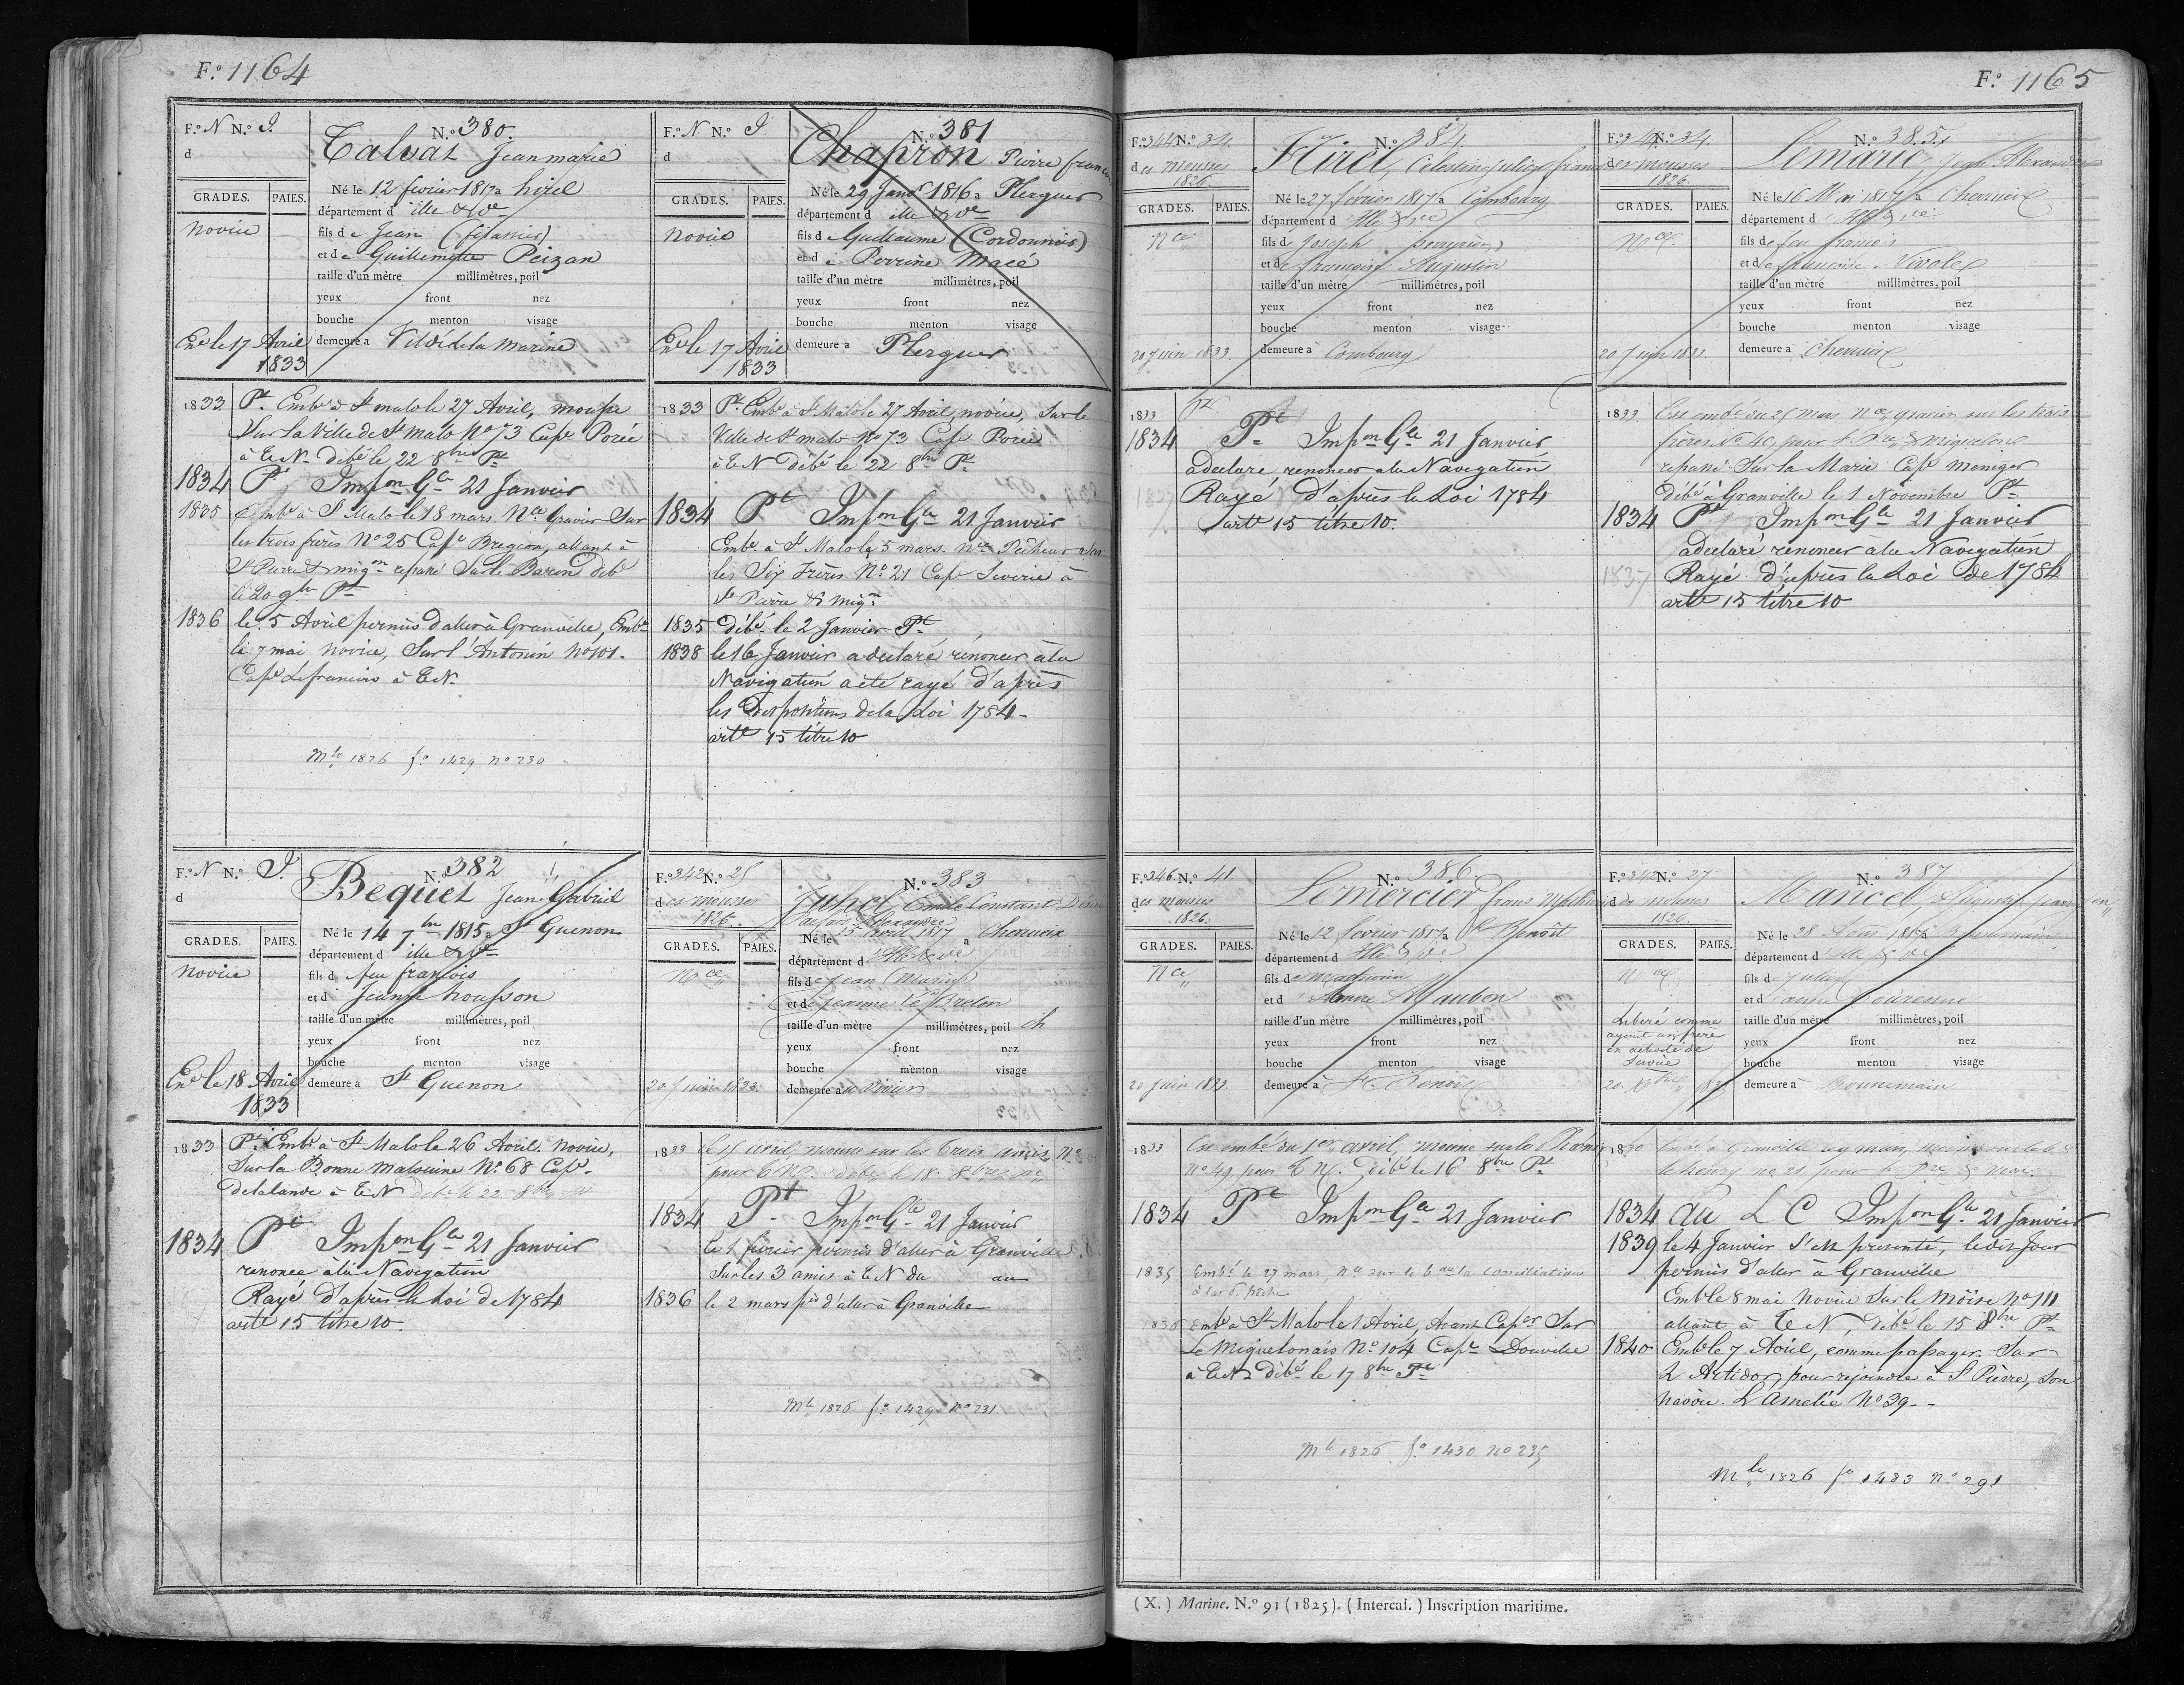 F.o 1164
F.o N N.o I.
d
N.o 380.
Talvat Jean marie
GRADES. PAIES.
Né le 12 fevrier 1817 a hirel
département d ille & Ve
novice
fils de Jean
et de Guillemette Peizan
taille d'un mètre millimètres, poil
yeux front nez
bouche menton visage
demeure a Vildé de la marine
En.é le 17 Avril
1833
1833 Pt. Embé à St malo le 27 Avril, mousse
Sur la Ville de St Malo No 73 Cape Porée
à T.N. débé le 22 8bre Pt
1834 Pt Impon Gle 21 Janvier
1835 Embé à St Malo le 18 mars Nce Gravier Sur
les trois frères No 25 Cape Bregeon, allant à
St Pierre & migon repassé Sur le Baron deb
le 20 9bre Pt
1836 le 5 Avril permis d'aller à Granville, Embé
le 7 mai novice, Sur l'Antonin No 101.
Cape Lefrancois à T.N.
Mle 1826 fo 1429 no 230
F.o N N.o I
d
N.o 381
Chapron Pierre
GRADES. PAIES.
Né le 29 Janer 1816 a Plerguer
département d ille & Ve
novice
fils de Guillaume (Cordonnier)
et de Perrine Macé
taille d'un mètre millimètres, poil
yeux front nez
bouche menton visage
demeure a Plerguer
En.é le 17 Avril
1833
1833 Pt. Embé à St Malo le 27 Avril, novice, Sur le
Ville de St malo no 73 Cape Porée
à T N débé le 22 8bre Pt
1834 Pt Impon Gle 21 Janvier
Embé à St Malo le 5 mars nce Pêcheur
les Six Frères No 21 Cape à
St Pierre & migon
1835 débé le 2 Janvier Pt
1838 le 16 Janvier a declaré renoncer à la
Navigation a été rayé d'après
les Dispositions de la Loi 1784
arte 15 titre 10
F.o N N.o I.
d
N.o 382
Bequet Jean Gabriel
GRADES. PAIES.
Né le 14 7bre 1815 a St Guenon
département d ille & Ve
novice
fils d feu françois
et d Jeanne housson
taille d'un mètre millimètres, poil
yeux front nez
bouche menton visage
demeure a St Guenon
En.é le 18 Avril
1833
1833 Pt. Embé à St Malo le 26 Avril novice,
Sur la Bonne malouine No 68 Cape
delalande à T N débé le 22 8bre Pt
1834 Pt Impon Gle 21 Janvier
renonce à la Navigation
Rayé d'après la Loi de 1784
arte 15 titre 10.
F.o 342 N.o 25
des mousses
1826
N.o 383
Juhel Emile Constant
Alexandre
GRADES. PAIES.
Né le 15 avril 1817 a Cherrueix
département d Ille & Ve
Nce
fils de Jean (Marin)
et de Jeanne Le Breton
taille d'un mètre millimètres, poil ch
yeux front nez
bouche menton visage
demeure a le Vivier
20 Juin 1833.
1833 le 15 avril, mousse sur les trois amis
pour T N. débé le 18 8bre Pt
1834 Pt Impon Gle 21 Janvier
le 1 fevrier permis d'aller à Granville
Sur les 3 amis à T N du au
1836 le 2 mars pis d'aller à Granville
Mle 1826 fo 1429 no 231
F.o 1165
F.o 344 N.o 34.
des mousses
1826.
N.o 384
Hirel, Celestin Julien
GRADES. PAIES.
Né le 27 février 1817 a Combourg
département d Ille & Ve
Nce
fils de Joseph
et de françoise Augustin
taille d'un mètre millimètres, poil
yeux front nez
bouche menton visage
demeure à Combourg
20 Juin 1833.
1833 Pt
1834 Pt Impon Gle 21 Janvier
a declaré renoncer à la Navigation
Rayé d'après la Loi 1784
arte 15 titre 10.
F.o N.o 34.
des mousses
1826.
N.o 385
Lemarie, Jean Alexandre
GRADES. PAIES.
Né le 16 Mai 1817 a Cherrueix
département d Ille & Ve
Nce
fils de feu francois
et de francoise Nivole
taille d'un mètre millimètres, poil
yeux front nez
bouche menton visage
demeure à Cherrueix
20 Juin 1833.
1833 Est embé du 25 mars Nce gravier sur les trois
frères No 40, pour St Pre & miquelon
repassé Sur la Marie Cape meniger
débé à Granville le 1 Novembre Pt
1834 Pt Impon Gle 21 Janvier
a declaré renoncer à la Navigation
1837 Rayé d'après la Loi de 1784
arte 15 titre 10
F.o 346 N.o 41.
des mousses
1826.
N.o 386.
Lemercier
GRADES. PAIES.
Né le 12 février 1817 a St Benoit
département d Ille & Ve
Nce
fils de Mathurin
et d Anne Maubon
taille d'un mètre millimètres, poil
yeux front nez
bouche menton visage
demeure à St Benoit
20 Juin 1833.
1833 Est embé du 1er avril, mousse sur le
No 49 pour T N. débé le 16 8bre Pt
1834 Pt Impon Gle 21 Janvier
1835 Embé le 27 mars, nce sur le bau la Conciliation
à la pte pêche
1836 Embé à St Malo le 1 Avril, Avant Caper Sur
Le Miquelonais No 104 Cape Douville
à T.N. débé le 17 8bre Pt
Mle 1826 fo 1430 no 235
F.o N.o 27
des mousses
1826
N.o 387
Mancel
GRADES. PAIES.
Né le 28 1817 a Bonnemain
département d Ille & Ve
Nce
fils de Julien
et d anne
taille d'un mètre millimètres, poil
yeux front nez
bouche menton visage
demeure à Bonnemain
Liberé comme
ayant un frère
en activité de
Service
1830 Embé à Granville
le henry no 21 pour
1834 au L C Impon Gle 21 Janvier
1839 le 4 Janvier S'est presenté, ledit Jour
permis d'aller à Granville
Emb le 8 mai Novice Sur le Moïse No 111
allant à T N, débé le 15 8bre Pt
1840 Emb le 7 Avril, comme passager Sur
L'Artidor, pour rejoindre à St Pierre, Son
navire L'Amelie No 39 - -
Mle 1826 fo 1483 No 291
(X.) Marine. N.o 91 (1825). (Intercal.) Inscription maritime.